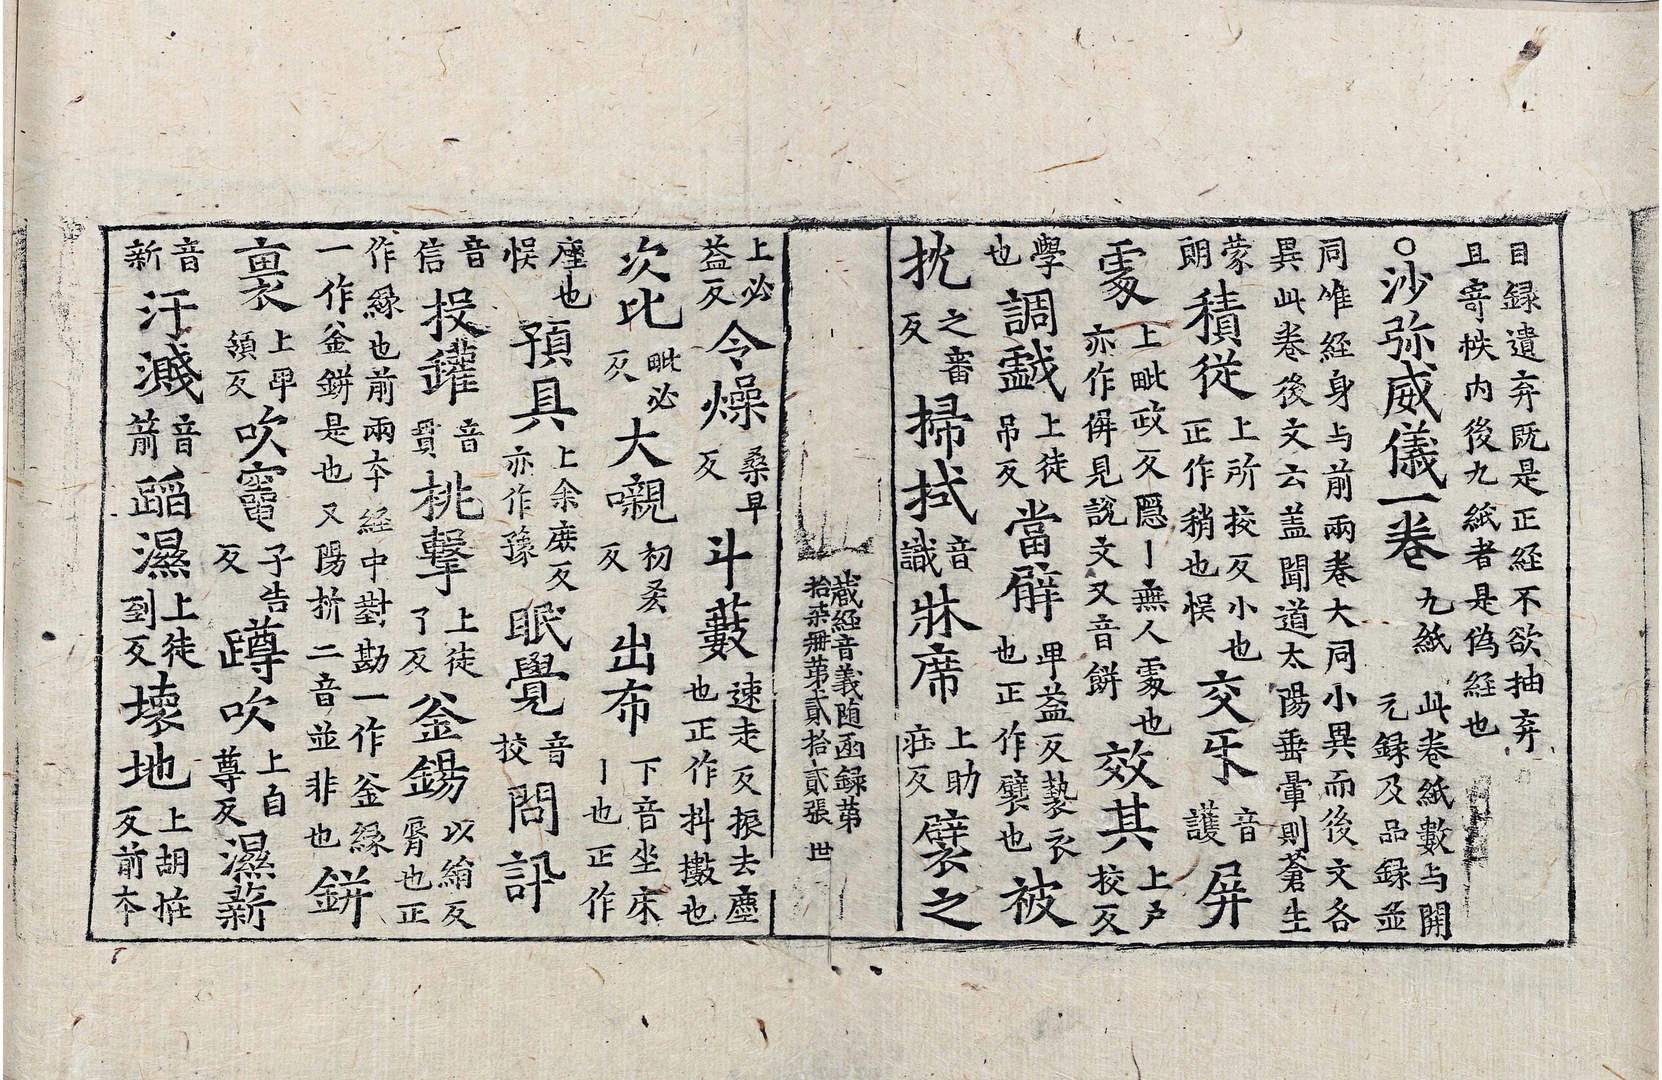 目録遺弃既是正経不欲抽弃
且寄帙内後九紙者是偽経也
○沙弥威儀一卷 九紙 此卷紙數与開元録及品録並
同唯経身与前兩卷大同小異而後文各
異此卷後文云蓋聞道太陽垂暈則蒼生
蒙朗 積従 上所挍反小也正作稍也悮 交㸦 音護 屏
處 上毗政反隱丨無人處也亦作偋見說文又音餅 效其 上戶挍反
學也 調戱 上徒吊反 當𮝹 卑益反褺衣也正作襞也 被
抌 之審反 掃拭 音識 牀席 上助庄反 襞之
藏経音義随函録第
拾柒册第貳拾貳張 世
上必益反 令燥 桑早反 斗藪 速走反振去塵也正作抖擻也
次比 毗必反 大嚫 初覲反 出布 下音坐床丨也正作
座也悮 預具 上余庶反亦作豫 眠覺 音挍 問訊
音信 投鑵 音貫 挑擊 上徒了反 釜鍚 以絹反㽽也正
作縁也前兩夲経中對勘一作釜縁
一作釜鉼是也又陽折二音並非也 鉼
裏 上卑領反 吹竈 子告反 蹲吹 上自尊反 濕薪
音新 汙濺 音箭 蹈濕 上徒到反 壊地 上胡恠反前夲